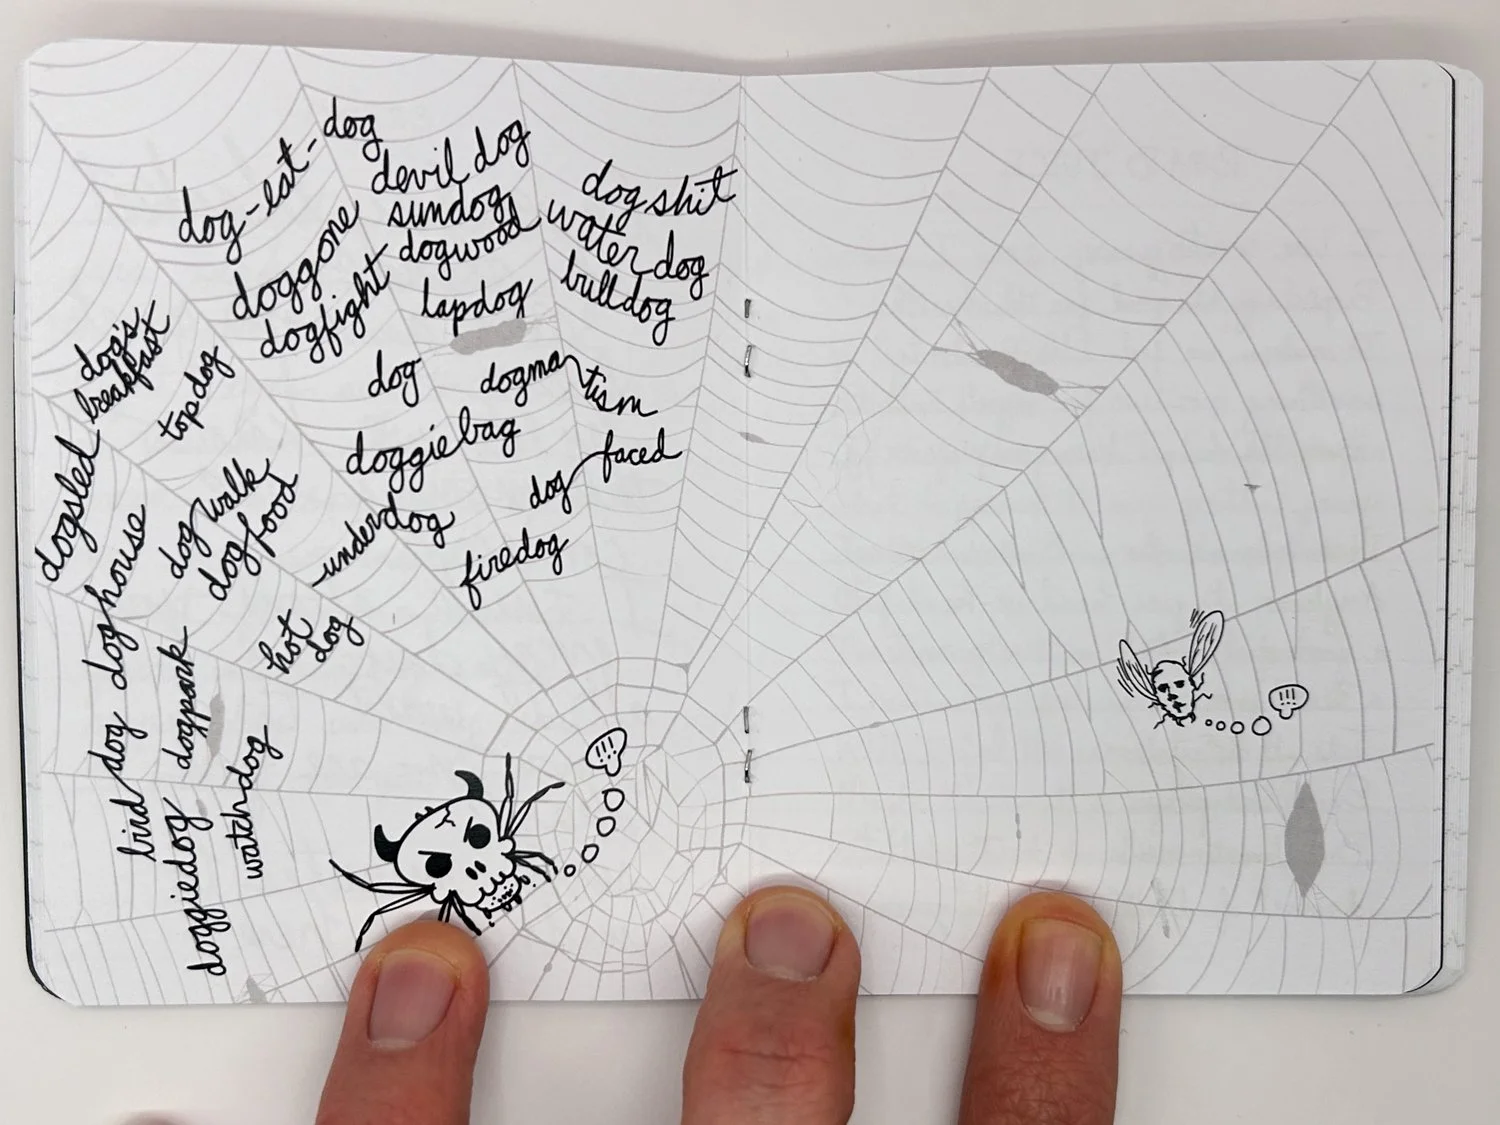 dog-eat-dog
devil dog
sundog
dogwood
dogshit
water dog
bulldog
doggone
dogfight
lapdog
dog's
breakfast
topdog
dog
dogmatism
doggiebag
dogfaced
dogsled
dogwalk
dogfood
underdog
firedog
doghouse
hot
dog
bird dog
dogpark
watchdog
doggiedog
!!!
!!!